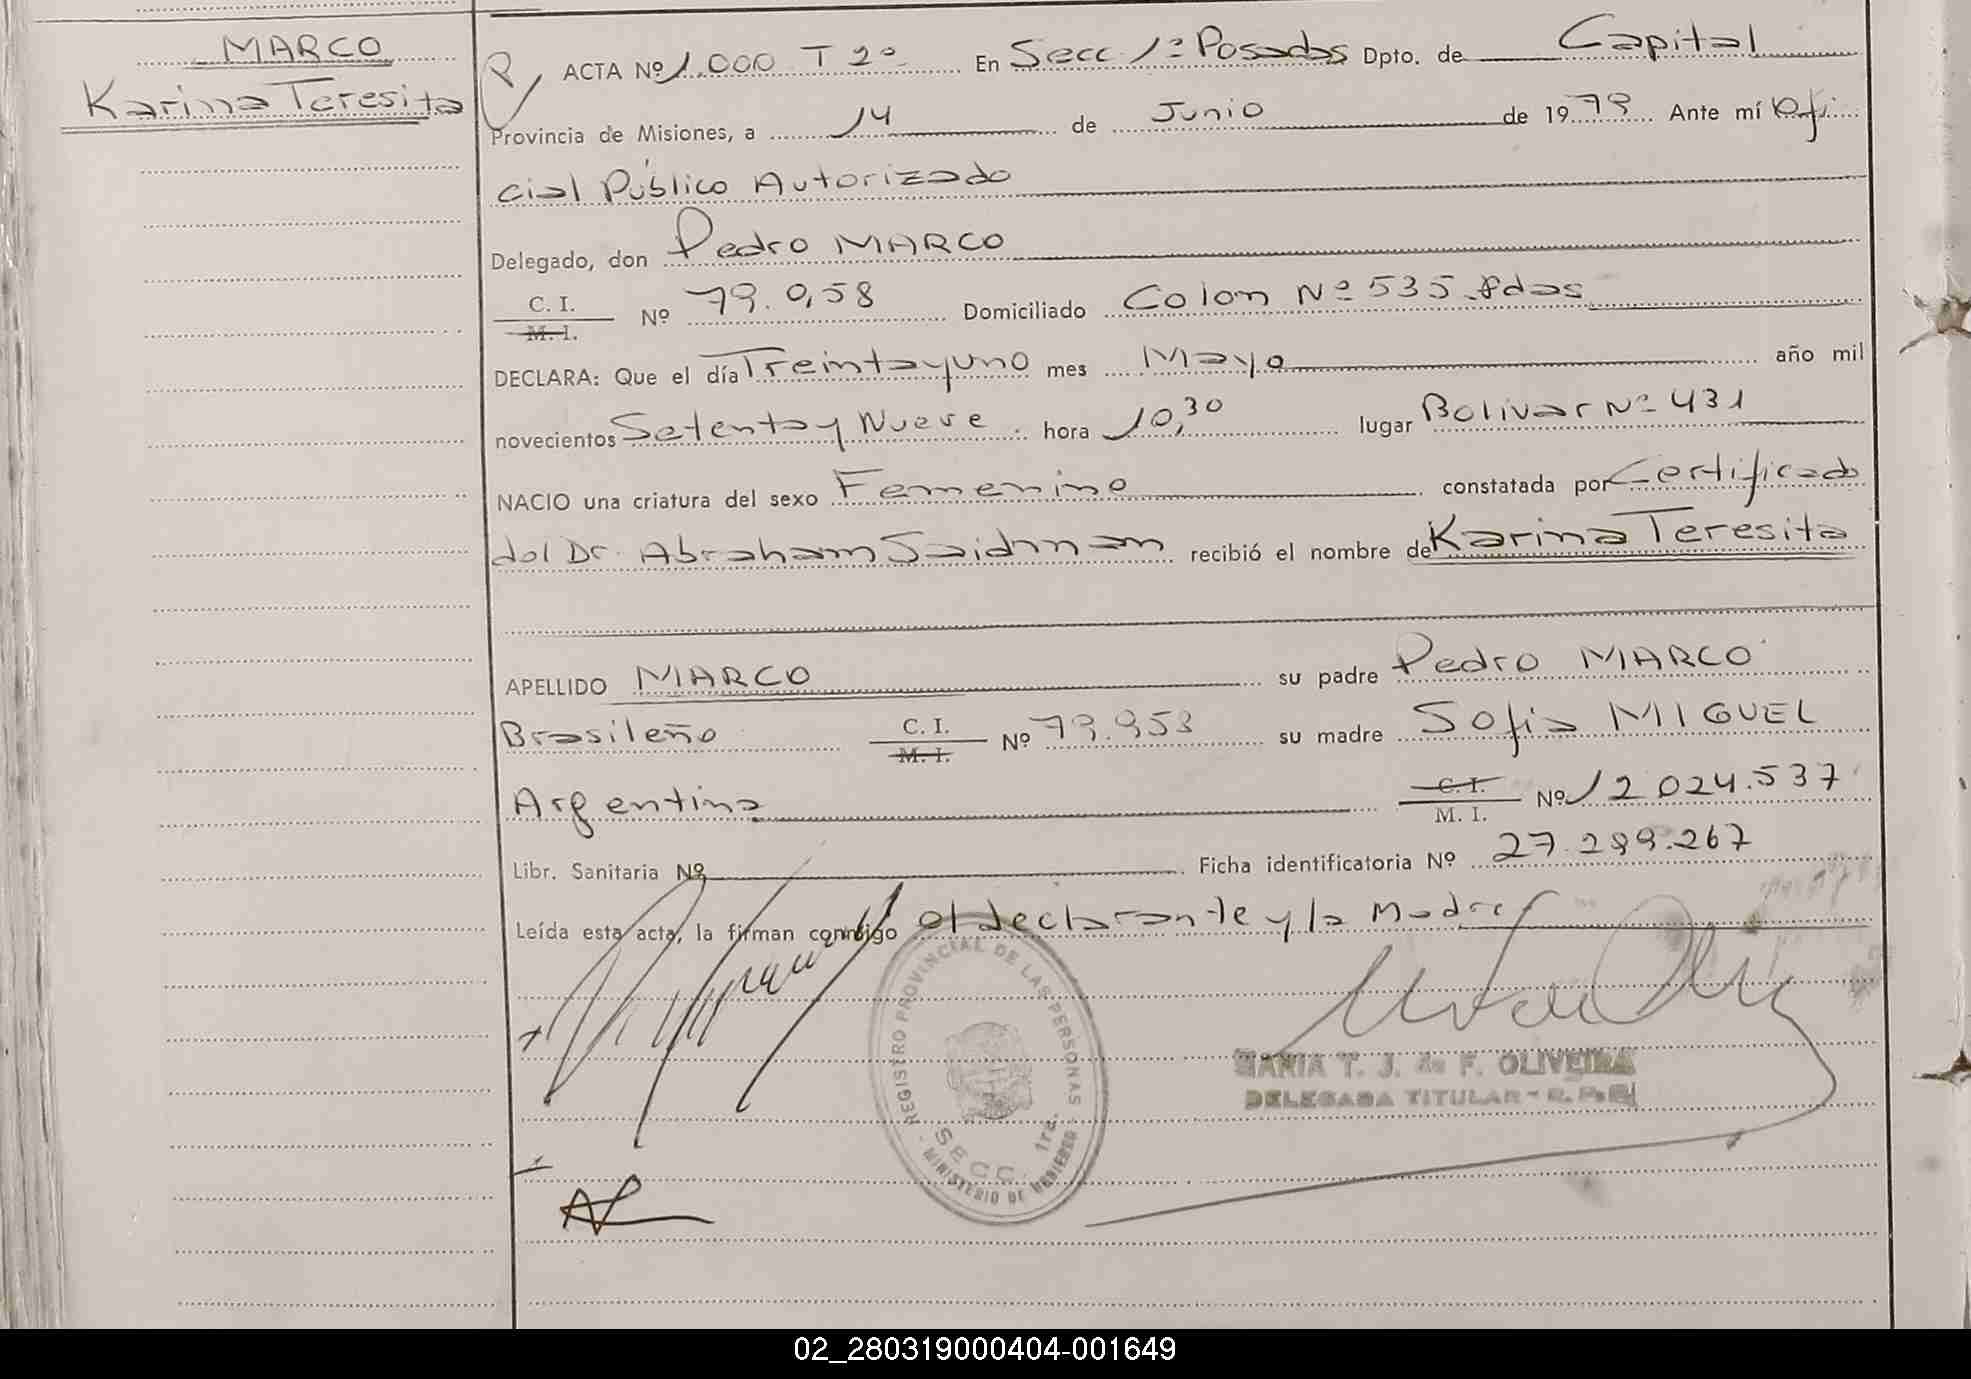 MARCO
Karina Teresita
ACTA Nº 1.000 T 2º En Secc 1ª Posadas Dpto. de Capital
Provincia de Misiones, a 14 de Junio de 1979 Ante mí Ofi
cial Público Autorizado
Delegado, don Pedro MARCO
C. I.
M. I.
Nº 79.0,58 Domiciliado Colon Nº 535 Pdas
DECLARA: Que el día Treintayuno mes Mayo año mil
novecientos Setenta y Nueve. hora 10,30 lugar Bolivar Nº 431
NACIO una criatura del sexo Femenino constatada por Certificado
del Dr. Abraham Saidman recibió el nombre de Karina Teresita
APELLIDO MARCO su padre Pedro MARCO
Brasileño C. I. Nº 79.958 su madre Sofia MIGUEL
M. I.
Argentina C. I. Nº 12 024.537
M. I.
Libr. Sanitaria Nº Ficha identificatoria Nº 27.299.267
Leída esta acta, la firman conmigo el declarante y la Madre
REGISTRO PROVINCIAL DE LAS PERSONAS
SECC. 1ra.
MINISTERIO DE GOBIERNO
MARIA T. J. de F. OLIVEIRA
DELEGADA TITULAR - R. P. P.
02_280319000404-001649